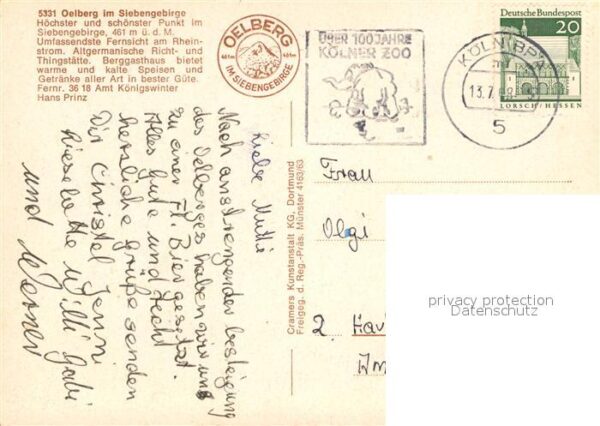 5331 Oelberg im Siebengebirge
Höchster und schönster Punkt im
Siebengebirge, 461 m ü. d. M.
Umfassendste Fernsicht am Rhein-
strom. Altgermanische Richt- und
Thingstätte. Berggasthaus bietet
warme und kalte Speisen und
Getränke aller Art in bester Güte.
Fernr. 36 18 Amt Königswinter
Hans Prinz
OELBERG
461m
461m
IM SIEBENGEBIRGE
ÜBER 100 JAHRE
KÖLNER ZOO
KÖLN BPA
13.7.
5
Deutsche Bundespost
20
LORSCH/HESSEN
Liebe Mutti
Nach anstrengender besteigung
des Oelberges haben wir uns
zu einer Fl. Bier gesetzt.
Alles gute und recht
herzliche grüße senden
Dir Christel Jenni
Lieselotte Willi Gabi
und Werner
Cramers Kunstanstalt KG, Dortmund
Freigeg. d. Reg.-Präs. Münster 4163/63
Frau
Olgi
2. Hav
privacy protection
Datenschutz